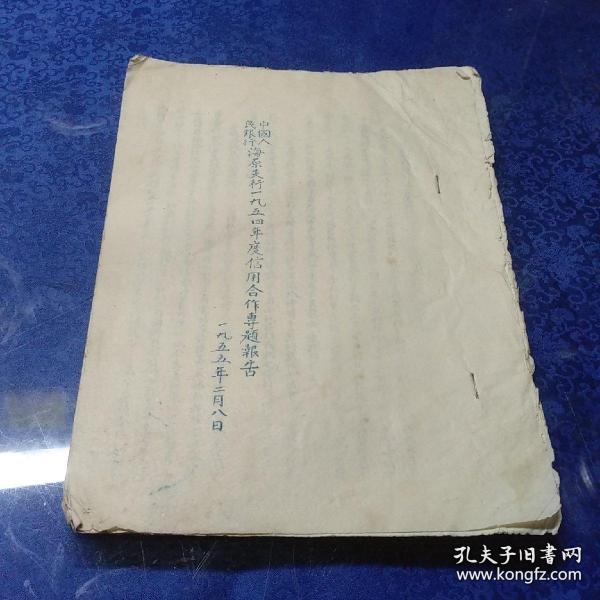 中國人民銀行海原支行一九五四年度信用合作專題報告
一九五五年二月八日
孔夫子旧书网
www.kongfz.com